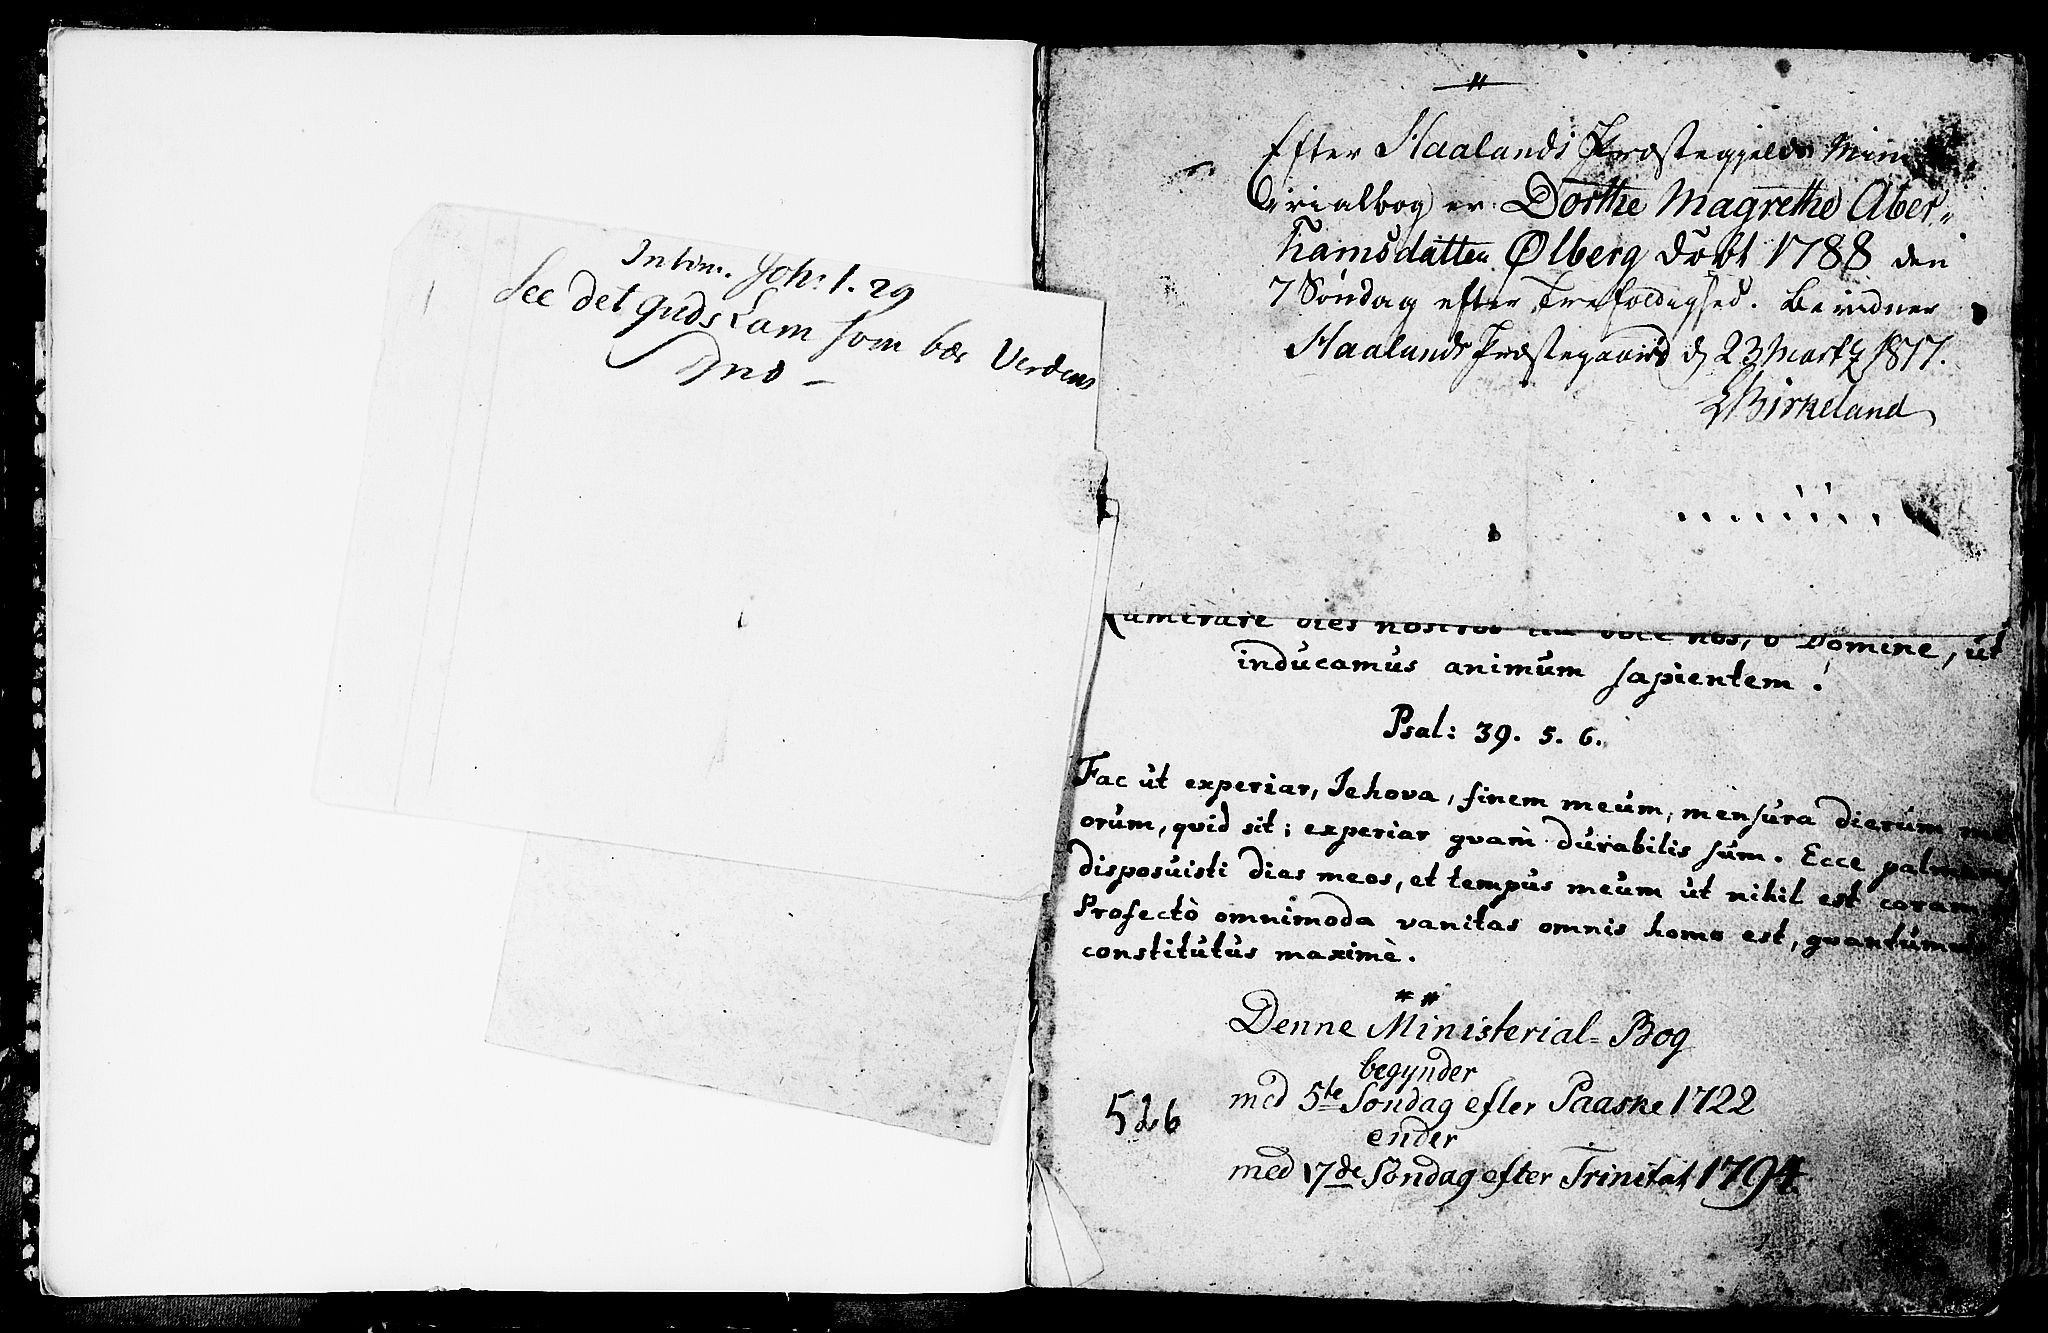 Intim. Joh: 1. 29
See det Guds Lam som bær Verdens
Synd –
Efter Haalands Præstegjelds Mini
sterialbog er Dorthe Magrethe Aber„
hamsdatter Ølberg døbt 1788 den
7 Søndag efter Trefoldighed. Bevidner
Haalands Præstegaard d. 23 Martz 1817.
Birkeland
Numerare dies nostros ita doce nos, o Domine, ut
inducamus animum sapientem!
Psal: 39. 5. 6.
Fac ut experiar, Jehova, finem meum, mensura dierum me
orum, qvid sit; experiar qvam durabilis sum. Ecce palmares
disposuisti dies meos, et tempus meum ut nihil est coram
Profectò omnimoda vanitas omnis homo est, qvantumvis
constitutus maximè.
Denne Ministerial=Bog
begynder
med 5te Søndag efter Paaske 1722
ender
526
med 17de Søndag efter Trinitat 1794